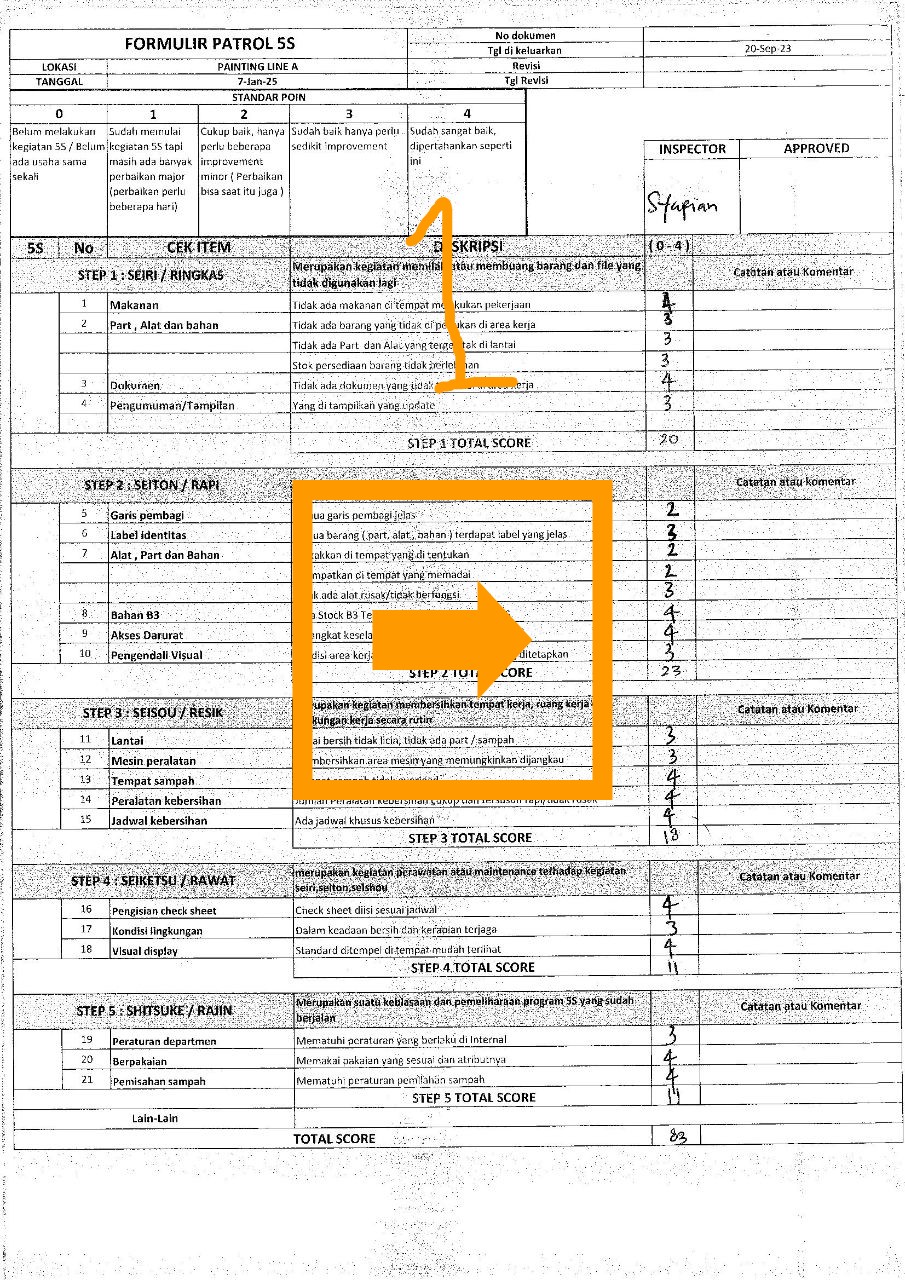 FORMULIR PATROL 5S
No dokumen
Tgl di keluarkan 20-Sep-23
LOKASI PAINTING LINE A Revisi
TANGGAL 7-Jan-25 Tgl Revisi
STANDAR POIN
0 1 2 3 4
Belum melakukan kegiatan 5S / Belum ada usaha sama sekali
Sudah memulai kegiatan 5S tapi masih ada banyak perbaikan major (perbaikan perlu beberapa hari)
Cukup baik, hanya perlu beberapa improvement minor ( Perbaikan bisa saat itu juga )
Sudah baik hanya perlu sedikit improvement
Sudah sangat baik, dipertahankan seperti ini
INSPECTOR APPROVED
1
5S No CEK ITEM DESKRIPSI ( 0 - 4 )
STEP 1 : SEIRI / RINGKAS Merupakan kegiatan memilah atau membuang barang dan file yang tidak digunakan lagi Catatan atau Komentar
1 Makanan Tidak ada makanan di tempat melakukan pekerjaan 4
2 Part , Alat dan bahan Tidak ada barang yang tidak di perlukan di area kerja 3
Tidak ada Part dan Alat yang tergeletak di lantai 3
Stok persediaan barang tidak berlebihan 3
3 Dokumen Tidak ada dokumen yang tidak di area kerja 4
4 Pengumuman/Tampilan Yang di tampilkan yang update 3
STEP 1 TOTAL SCORE 20
STEP 2 : SEITON / RAPI Catatan atau komentar
5 Garis pembagi garis pembagi jelas 2
6 Label identitas barang ( part, alat , bahan ) terdapat label yang jelas 3
7 Alat , Part dan Bahan di tempat yang di tentukan 2
di tempat yang memadai 2
ada alat rusak/tidak berfungsi 3
8 Bahan B3 Stock B3 4
9 Akses Darurat 4
10 Pengendali Visual area kerja ditetapkan 3
STEP 2 TOTAL SCORE 23
STEP 3 : SEISOU / RESIK kegiatan membersihkan tempat kerja, ruang kerja kerja secara rutin Catatan atau Komentar
11 Lantai bersih tidak licin, tidak ada part / sampah 3
12 Mesin peralatan area mesin yang memungkinkan dijangkau 3
13 Tempat sampah 4
14 Peralatan kebersihan Jumlah Peralatan kebersihan cukup dan tersusun rapi/tidak rusak 4
15 Jadwal kebersihan Ada jadwal khusus kebersihan 4
STEP 3 TOTAL SCORE 18
STEP 4 : SEIKETSU / RAWAT merupakan kegiatan perawatan atau maintenance terhadap kegiatan seiri,seiton,seishou Catatan atau Komentar
16 Pengisian check sheet Check sheet diisi sesuai jadwal 4
17 Kondisi lingkungan Dalam keadaan bersih dan kerapian terjaga 3
18 Visual display Standard ditempel di tempat mudah terlihat 4
STEP 4 TOTAL SCORE 11
STEP 5 : SHITSUKE / RAJIN Merupakan suatu kebiasaan dan pemeliharaan program 5S yang sudah berjalan Catatan atau Komentar
19 Peraturan departmen Mematuhi peraturan yang berlaku di Internal 3
20 Berpakaian Memakai pakaian yang sesuai dan atributnya 4
21 Pemisahan sampah Mematuhi peraturan pemilahan sampah 4
STEP 5 TOTAL SCORE 11
Lain-Lain
TOTAL SCORE 83